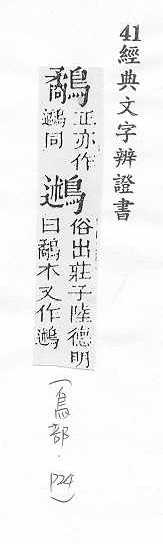 41經典文字辨證書
鷸 正亦作
同
鶐 俗出莊子陸德明
曰鷸本又作鶐
(鳥部.P24)